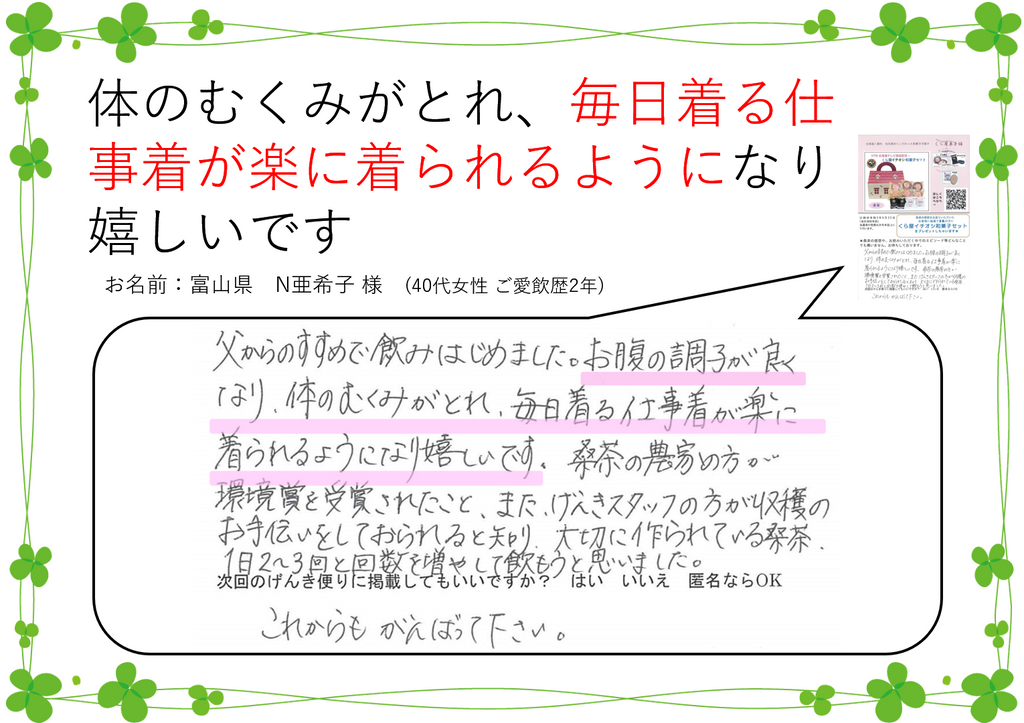 体のむくみがとれ、毎日着る仕
事着が楽に着られるようになり
嬉しいです
お名前：富山県　N亜希子 様　(40代女性 ご愛飲歴2年)
くら屋イチオシ和菓子セット
父からのすすめで飲みはじめました。お腹の調子が良く
なり、体のむくみがとれ、毎日着る仕事着が楽に
着られるようになり嬉しいです。桑茶の農家の方が
環境賞を受賞されたこと、また、げんきスタッフの方が収穫の
お手伝いをしておられると知り、大切に作られている桑茶、
1日2〜3回と回数を増やして飲もうと思いました。
次回のげんき便りに掲載してもいいですか？　はい　いいえ　匿名ならOK
これからも がんばって下さい。